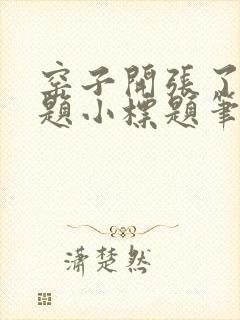 窑子開張了
題小標題筆
瀟楚然